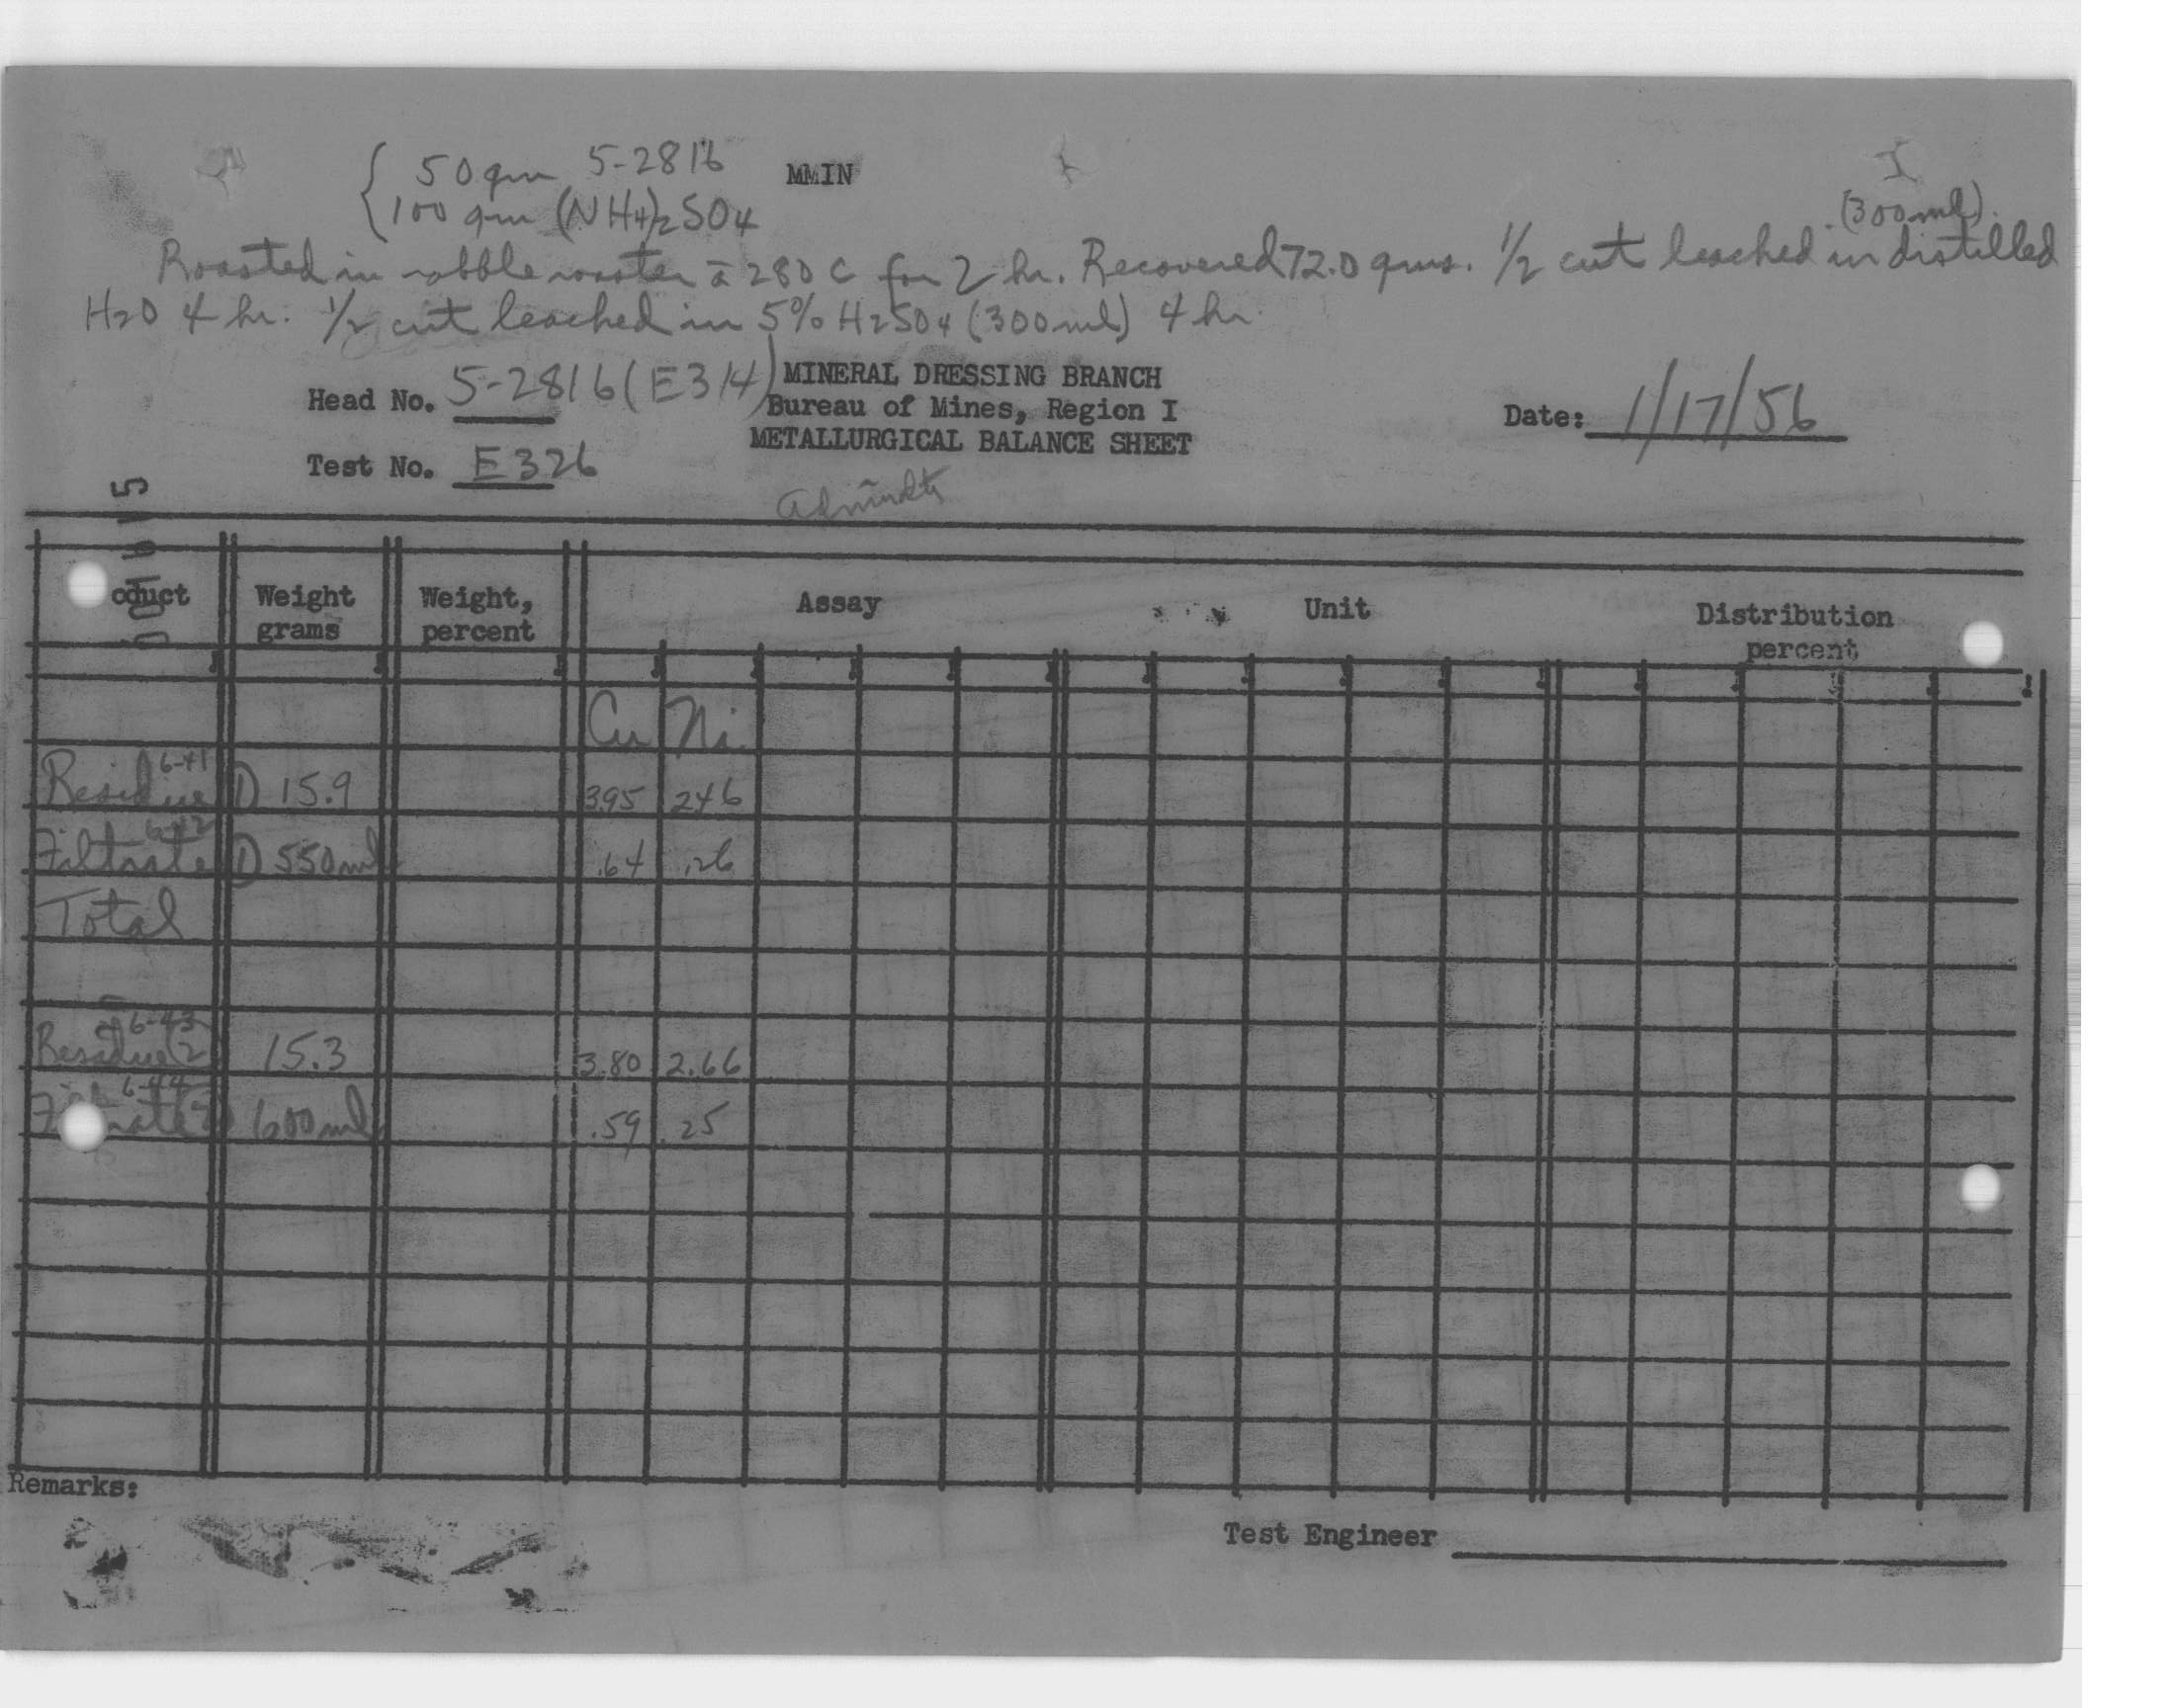 50 gm 5-2816 MMIN
100 gm (NH4)2SO4
(300 ml)
Roasted in rabble roaster ā 280 C for 2 hr. Recovered 72.0 gms. 1/2 cut leached in distilled
H2O 4 hr. 1/2 cut leached in 5% H2SO4 (300 ml) 4 hr.
Head No. 5-2816 (E314) MINERAL DRESSING BRANCH
Bureau of Mines, Region I
Date: 1/17/56
METALLURGICAL BALANCE SHEET
Test No. E326
oduct Weight grams Weight, percent Assay Unit Distribution percent
Cu Ni
Residue 6-41 1) 15.9 3.95 2.46
Filtrate 6-42 1) 550 ml .64 .26
Total
Residue 2 6-43 15.3 3.80 2.66
6-44 600 ml .59 .25
Remarks:
Test Engineer